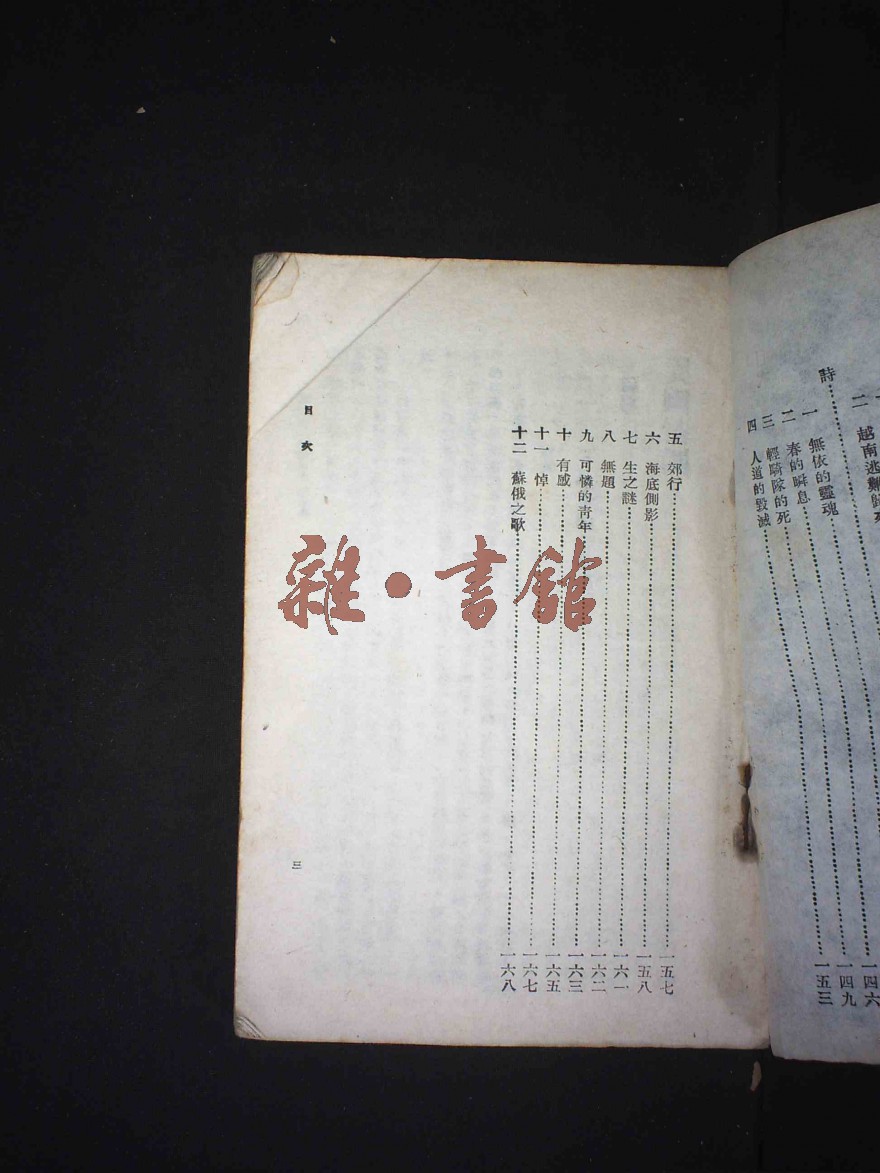 二 越南逃難
詩
一 無依的靈魂
二 春的瞬息……一四六
三 輕騎隊的死……一四九
四 人道的毀滅……一五三
五 郊行……一五七
六 海底側影……一五八
七 生之謎……一六一
八 無題……一六二
九 可憐的青年……一六三
十 有感……一六五
十一 悼……一六七
十二 蘇俄之歌……一六八
目次
三
雜•書館